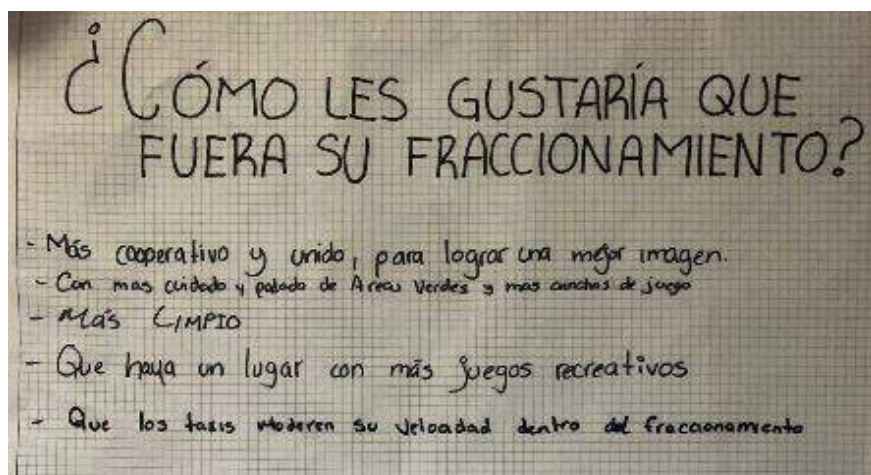 ¿CÓMO LES GUSTARÍA QUE
FUERA SU FRACCIONAMIENTO?
- Más cooperativo y unido, para lograr una mejor imagen.
- Con mas cuidado y podado de Areas Verdes y mas canchas de juego
- Más LIMPIO
- Que haya un lugar con más juegos recreativos
- Que los taxis moderen su velocidad dentro del fraccionamiento